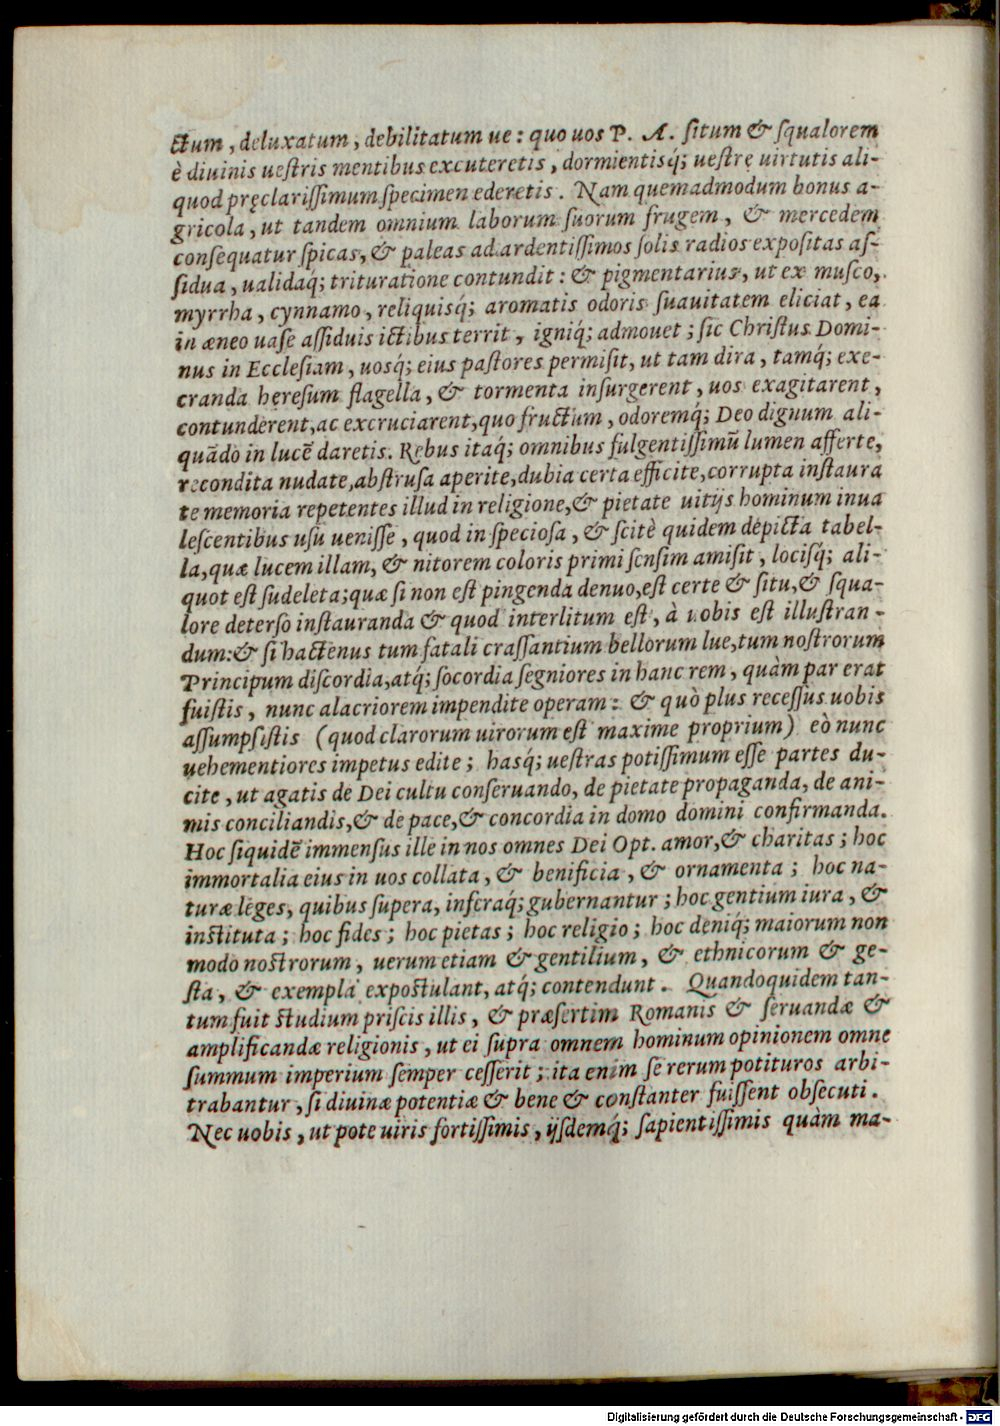 ctum, deluxatum, debilitatum ue: quo uos P. A. ſitum & ſqualorem
è diuinis ueſtris mentibus excuteretis, dormientisq́; ueſtrę uirtutis ali-
quod pręclariſſimum ſpecimen ederetis. Nam quemadmodum bonus a-
gricola, ut tandem omnium laborum ſuorum frugem, & mercedem
conſequatur ſpicas, & paleas ad ardentiſſimos ſolis radios expoſitas aſ-
ſidua, ualidaq́; trituratione contundit: & pigmentarius, ut ex muſco,
myrrha, cynnamo, reliquisq́; aromatis odoris ſuauitatem eliciat, ea
in æneo uaſe aſſiduis ictibus territ, igniq́; admouet; ſic Chriſtus Domi-
nus in Eccleſiam, uosq́; eius paſtores permiſit, ut tam dira, tamq́; exe-
cranda hęreſum flagella, & tormenta inſurgerent, uos exagitarent,
contunderent, ac excruciarent, quo fructum, odoremq́; Deo dignum ali-
quãdo in lucẽ daretis. Rebus itaq́; omnibus fulgentiſſimũ lumen afferte,
recondita nudate, abſtruſa aperite, dubia certa efficite, corrupta inſtaura
te memoria repetentes illud in religione, & pietate uitijs hominum inua
leſcentibus uſu ueniſſe, quod in ſpecioſa, & ſcitè quidem depicta tabel-
la, quæ lucem illam, & nitorem coloris primi ſenſim amiſit, lociſq́; ali-
quot eſt ſudeleta; quæ ſi non eſt pingenda denuo, eſt certe & ſitu, & ſqua-
lore deterſo inſtauranda & quod interlitum eſt, à uobis eſt illuſtran-
dum: & ſi hactenus tum fatali craſſantium bellorum lue, tum noſtrorum
Principum diſcordia, atq́; ſocordia ſegniores in hanc rem, quàm par erat
fuiſtis, nunc alacriorem impendite operam: & quò plus receſſus uobis
aſſumpſiſtis (quod clarorum uirorum eſt maxime proprium) eò nunc
uehementiores impetus edite; hasq́; ueſtras potiſſimum eſſe partes du-
cite, ut agatis de Dei cultu conſeruando, de pietate propaganda, de ani-
mis conciliandis, & de pace, & concordia in domo domini confirmanda.
Hoc ſiquidẽ immenſus ille in nos omnes Dei Opt. amor, & charitas; hoc
immortalia eius in uos collata, & benificia, & ornamenta; hoc na-
turæ leges, quibus ſupera, inferaq́; gubernantur; hoc gentium iura, &
inſtituta; hoc fides; hoc pietas; hoc religio; hoc deniq́; maiorum non
modo noſtrorum, uerum etiam & gentilium, & ethnicorum & ge-
ſta, & exempla expoſtulant, atq́; contendunt. Quandoquidem tan-
tum fuit ſtudium priſcis illis, & præſertim Romanis & ſeruandæ &
amplificandæ religionis, ut ei ſupra omnem hominum opinionem omne
ſummum imperium ſemper ceſſerit; ita enim ſe rerum potituros arbi-
trabantur, ſi diuinæ potentiæ & bene & conſtanter fuiſſent obſecuti.
Nec uobis, ut pote uiris fortiſſimis, ijſdemq́; ſapientiſſimis quàm ma-
Digitalisierung gefördert durch die Deutsche Forschungsgemeinschaft - DFG